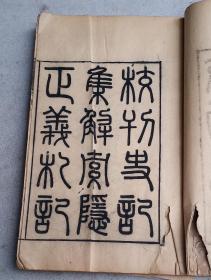 校刊史記
集解索隱
正義札記